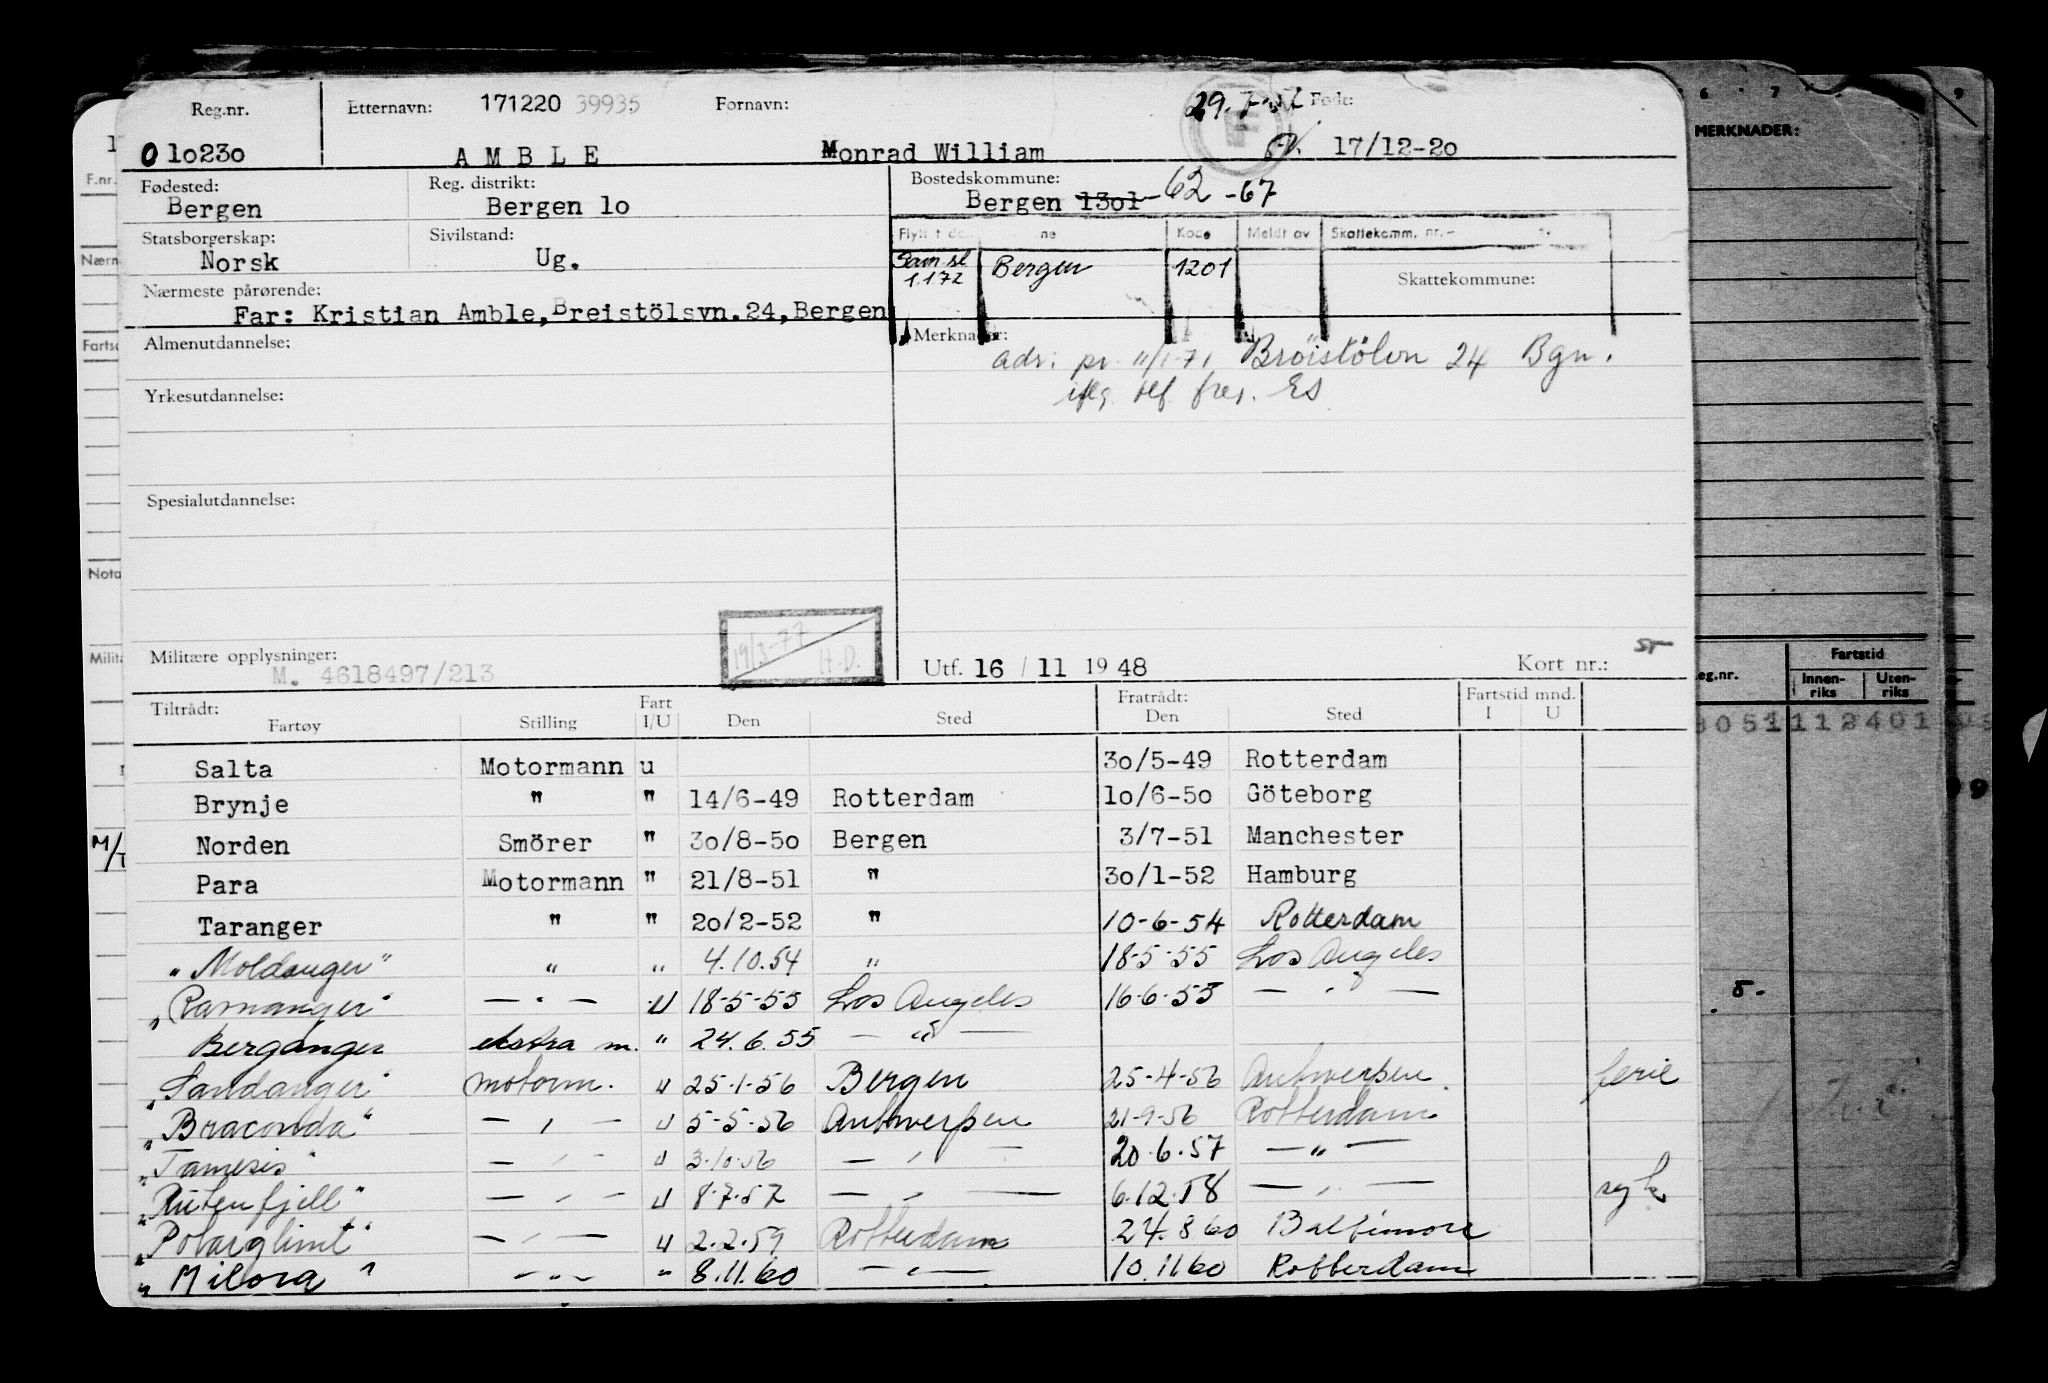 Reg.nr. Etternavn: 171220 39935 Fornavn: 29.7-57 Født:
010230 AMBLE Monrad William 17/12-20
Fødested: Reg. distrikt: Bostedskommune:
Bergen Bergen 10 Bergen 1301 -62 -67
Statsborgerskap: Sivilstand: Kode Meldt av Skattekomm. nr.
Norsk Ug. 1.1.72 Bergen 1201 Skattekommune:
Nærmeste pårørende:
Far: Kristian Amble, Breistölsvn.24, Bergen
Almenutdannelse: Merknader:
adr: pr. 11/1-71 Bröistölvn 24 Bgn.
iflg. tlf. ES
Yrkesutdannelse:
Spesialutdannelse:
19/3-77 H.D.
Militære opplysninger: Utf. 16 / 11 1948 Kort nr.:
M. 4618497/213
Tiltrådt: Fart Fratrådt: Fartstid mnd.
Fartøy Stilling I/U Den Sted Den Sted I U
Salta Motormann u 30/5-49 Rotterdam
Brynje " " 14/6-49 Rotterdam 10/6-50 Göteborg
Norden Smörer " 30/8-50 Bergen 3/7-51 Manchester
Para Motormann " 21/8-51 " 30/1-52 Hamburg
Taranger " " 20/2-52 " 10-6-54 Rotterdam
"Moldanger" " " 4.10.54 " 18-5-55 Los Angeles
"Ravnanger" — " — U 18-5-55 Los Angeles 16-6-55 — " —
Beranger ekstra m. " 24.6.55 — " —
"Sandanger" motorm. U 25-1-56 Bergen 25-4-56 Antwerpen ferie
"Braconda" — " — U 5-5-56 Antwerpen 21-9-56 Rotterdam
"Tamesis" — " — U 3-10-56 — " — 20.6.57 — " —
"Rutenfjell" — " — U 8.7.57 — " — 6.12.58 — " — syk
"Polarglimt" — " — U 2.2.59 Rotterdam 24.8.60 Baltimore
"Milora" — " — " 8.11.60 — " — 10.11.60 Rotterdam
6 7 9
MERKNADER:
Fartstid
eg.nr. Innen-riks Uten-riks
8051112401
F.nr.
Nærm
Fartsc
Nota
Milit
M/T